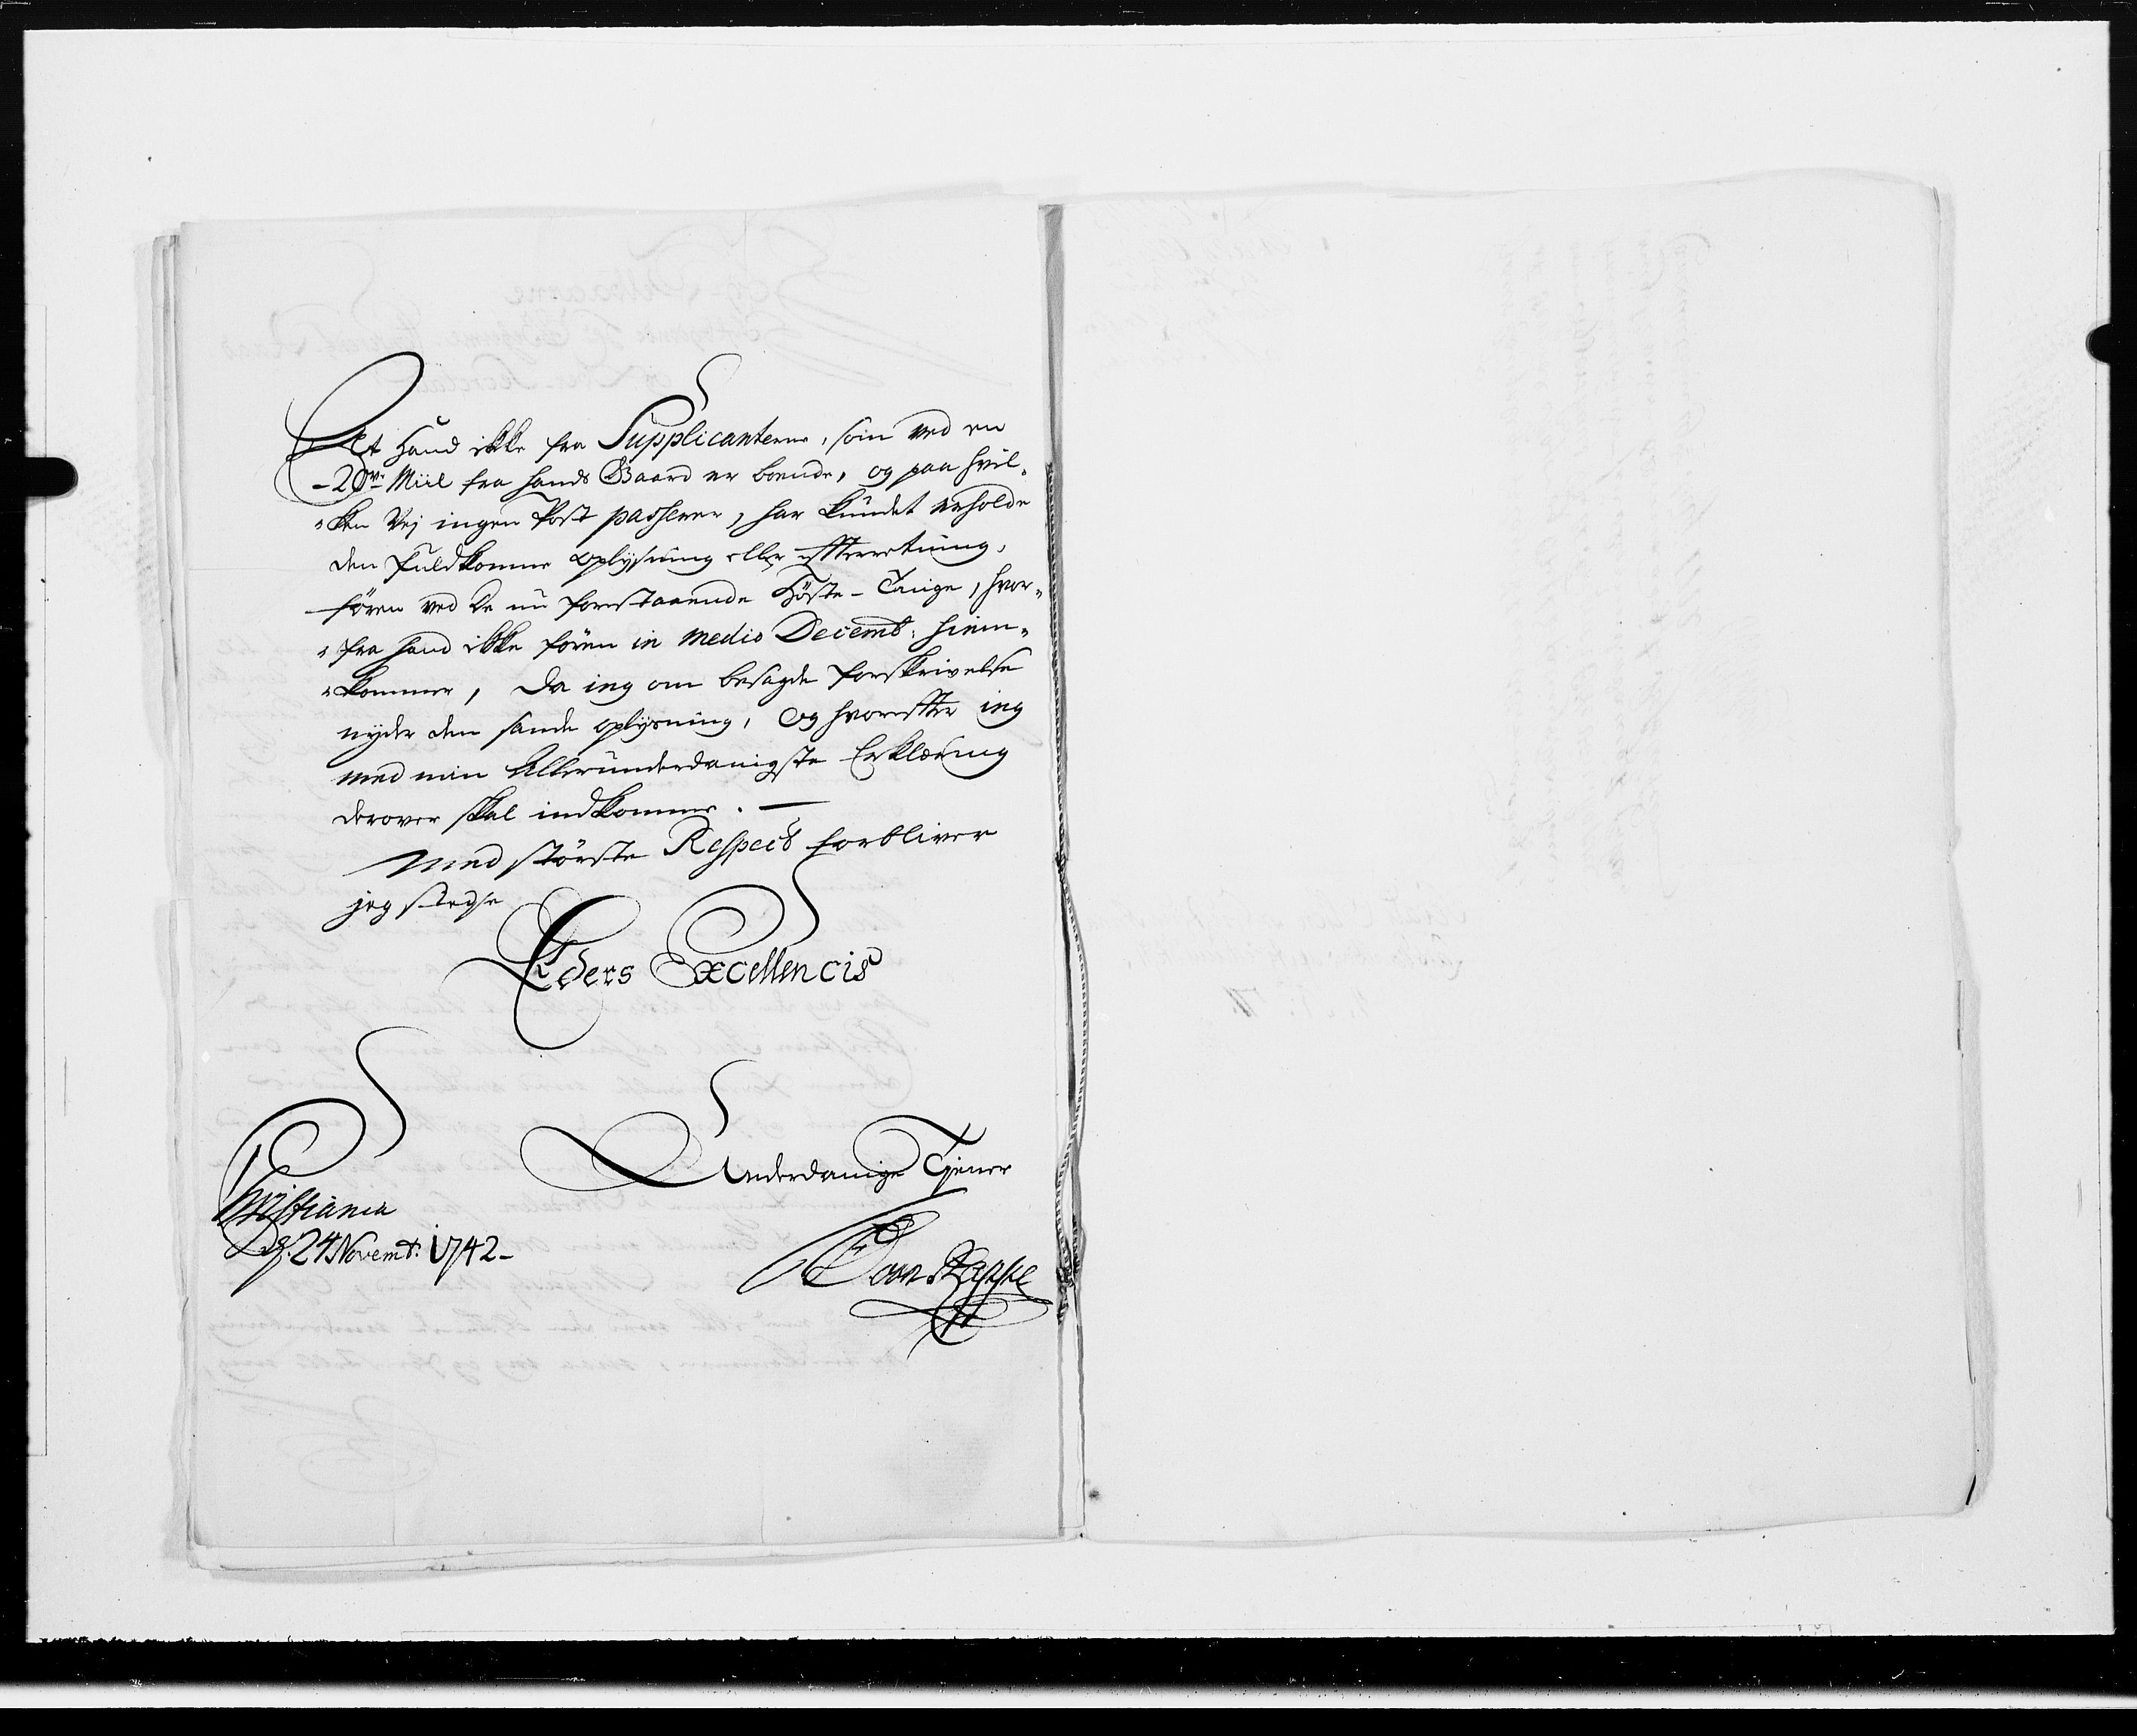 At Hand ikke fra Supplicanterne, som ved en
-20ve Miil fra hands Gaard er boende, og paa hvil-
-ken Vej ingen Post passerer, har kundet erholde
den fuldkomne oplysning eller efterretning,
fören ved de nu forestaaende Höste-Tinge, hvor-
-fra hand ikke fören in medio Decemb: hiem-
-kommer, da ieg om besagde forskrivelse
nyder den sande oplysning, og hvorefter ieg
med min Allerunderdanigste Erklæring
derover skal indkomme. —
Med störste Respect forbliver
jeg stedse
Eders Excellencis
Underdanige Tjener
Christiania
d. 24 Novemb: 1742-